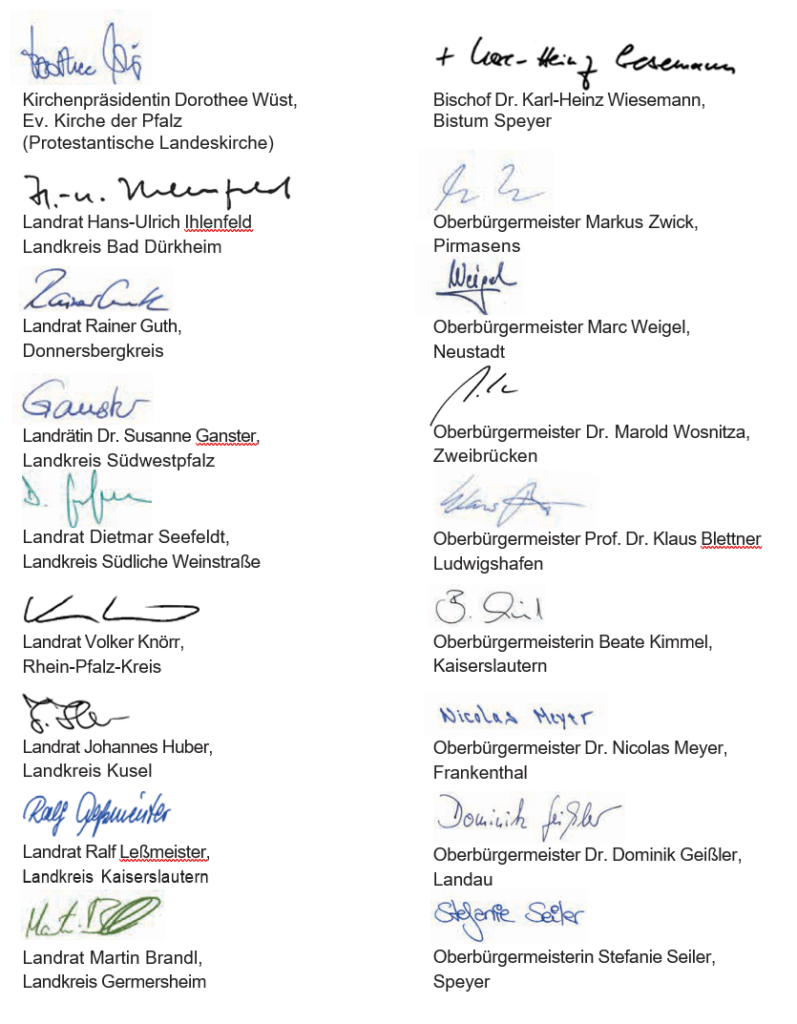 Dorothee Wüst
Kirchenpräsidentin Dorothee Wüst,
Ev. Kirche der Pfalz
(Protestantische Landeskirche)
H.-U. Ihlenfeld
Landrat Hans-Ulrich Ihlenfeld
Landkreis Bad Dürkheim
Rainer Guth
Landrat Rainer Guth,
Donnersbergkreis
Ganster
Landrätin Dr. Susanne Ganster,
Landkreis Südwestpfalz
D. Seefeldt
Landrat Dietmar Seefeldt,
Landkreis Südliche Weinstraße
Landrat Volker Knörr,
Rhein-Pfalz-Kreis
Landrat Johannes Huber,
Landkreis Kusel
Ralf Leßmeister
Landrat Ralf Leßmeister,
Landkreis Kaiserslautern
Landrat Martin Brandl,
Landkreis Germersheim
+ Karl-Heinz Wiesemann
Bischof Dr. Karl-Heinz Wiesemann,
Bistum Speyer
Oberbürgermeister Markus Zwick,
Pirmasens
Weigel
Oberbürgermeister Marc Weigel,
Neustadt
Oberbürgermeister Dr. Marold Wosnitza,
Zweibrücken
Klaus
Oberbürgermeister Prof. Dr. Klaus Blettner
Ludwigshafen
B.
Oberbürgermeisterin Beate Kimmel,
Kaiserslautern
Nicolas Meyer
Oberbürgermeister Dr. Nicolas Meyer,
Frankenthal
Dominik Geißler
Oberbürgermeister Dr. Dominik Geißler,
Landau
Stefanie Seiler
Oberbürgermeisterin Stefanie Seiler,
Speyer